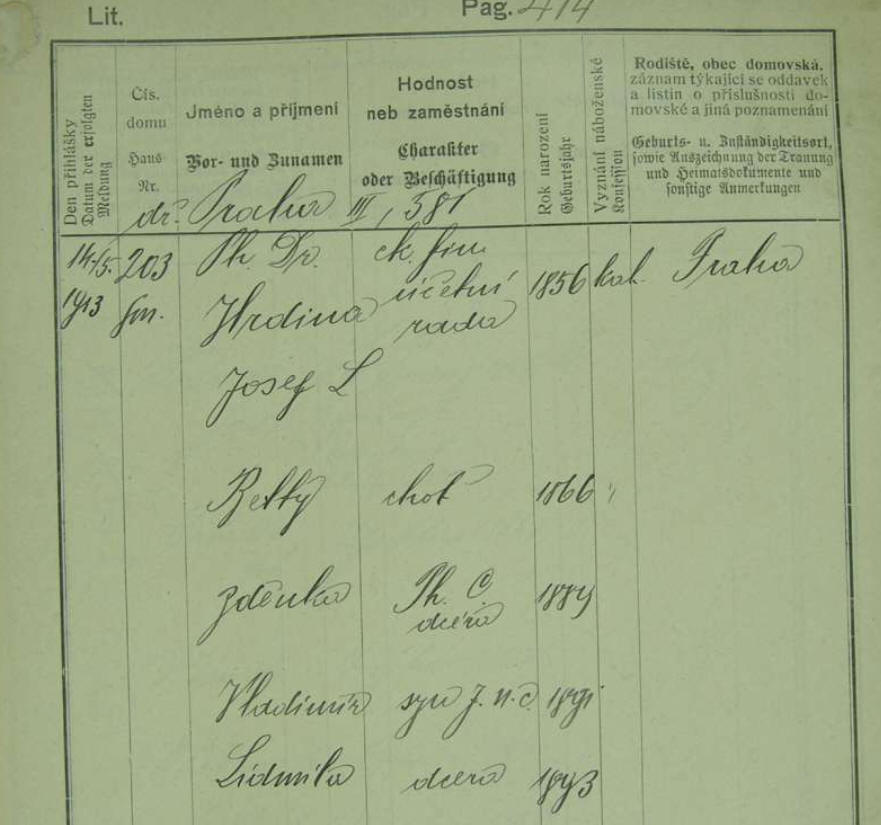 Lit. Pag. 414
Den přihlášky
Datum der erfolgten
Meldung
Čís.
domu
Haus
Nr.
Jméno a příjmení
Vor- und Zunamen
Hodnost
neb zaměstnání
Charakter
oder Beschäftigung
Rok narození
Geburtsjahr
Vyznání náboženské
Konfession
Rodiště, obec domovská,
záznam týkající se oddavek
a listin o příslušnosti do-
movské a jiná poznamenání
Geburts- u. Zuständigkeitsort,
sowie Auszeichnung der Trauung
und Heimatsdokumente und
sonstige Anmerkungen
dř. Praha III, 581
14./5. 203 Ph. Dr. ck. fin.
1913 Hrdina účetní 1856 kat. Praha
rada
Josef L
Betty choť 1866 "
Zdenka Ph. C. 1889
dcera
Vladimír syn J. u. c. 1891
Lidmila dcera 1893